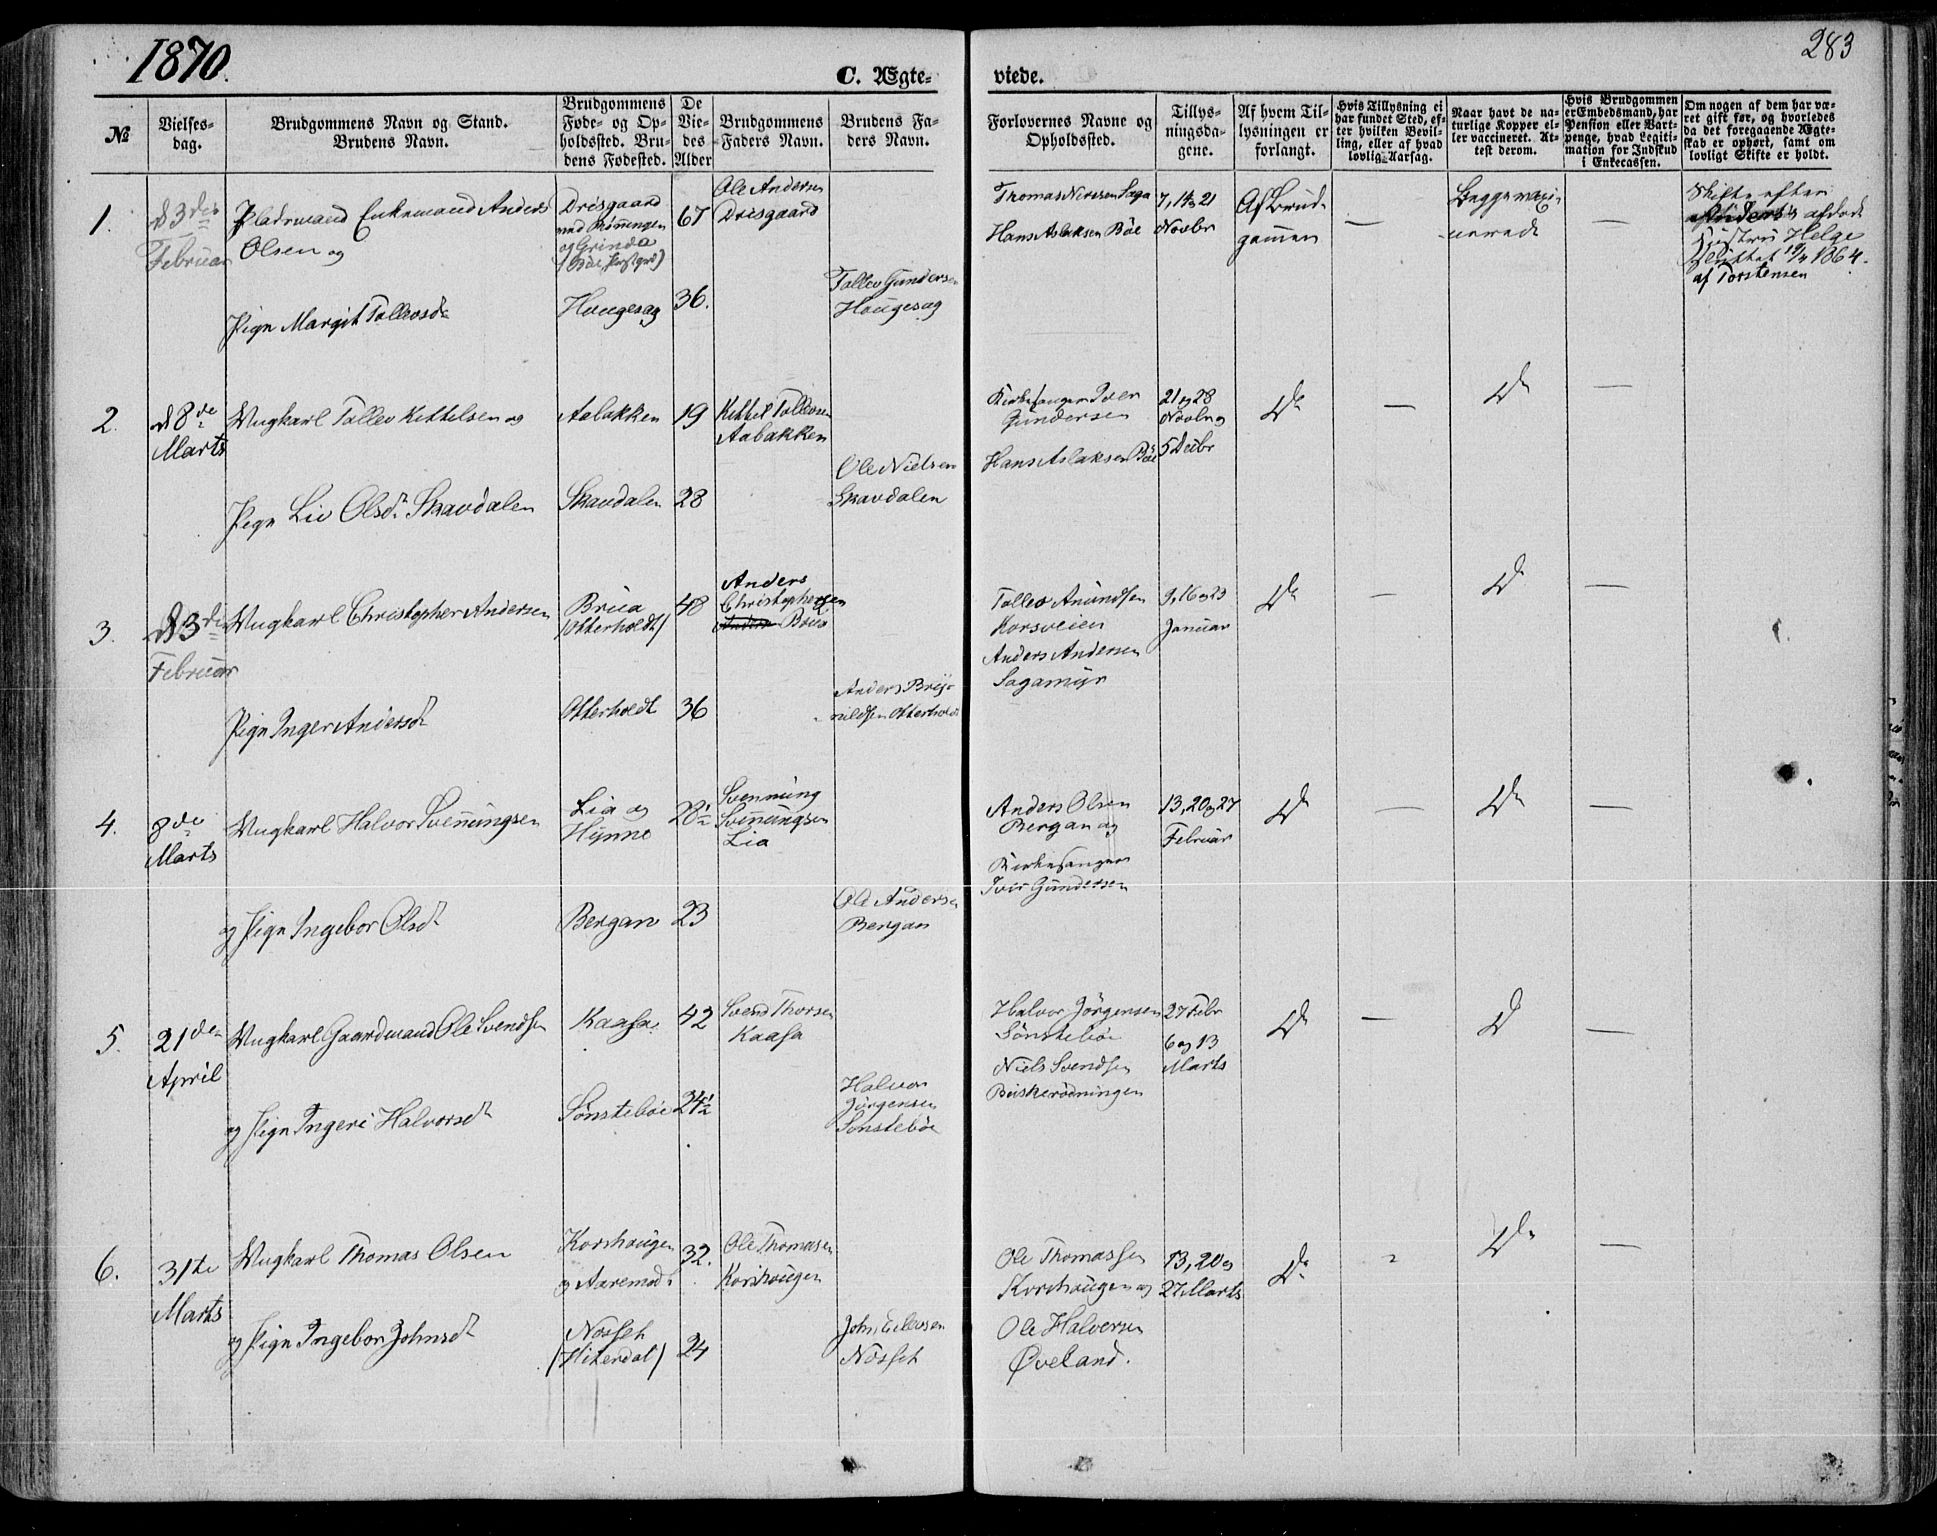 1870.
C. Ægte-
viede.
283
№
Vielses-
dag.
Brudgommens Navn og Stand.
Brudens Navn.
Brudgommens
Føde- og Op-
holdssted. Bru-
dens Fødested.
De
Vie-
des
Alder
Brudgommens
Faders Navn.
Brudens Fa-
ders Navn.
Forlovernes Navne og
Opholdssted.
Tillys-
ningsda-
gene.
Af hvem Til-
lysningen er
forlangt.
Hvis Tillysning ei
har fundet Sted, ef-
ter hvilken Bevil-
ling, eller af hvad
lovlig Aarsag.
Naar havt de na-
turlige Kopper el-
ler vaccineret. At-
test derom.
Hvis Brudgommen
er Embedsmand, har
Pension eller Vart-
penge, hvad Legiti-
mation for Indskud
i Enkecassen.
Om nogen af dem har væ-
ret gift før, og hvorledes
da det foregaaende Ægte-
skab er ophørt, samt om
lovligt Skifte er holdt.
1.
d 3de
Februar
Pladsmand Enkemand Anders
Olsen og
Pige Margit Tollevsd.
Drisgaard
og Grinda
Hougesag
67
36.
Ole Andersen
Drisgaard
Tollev Gundersen
Hougesag
Thomas Nirssen Saga
Hans Aslaksen Böe
7, 14, 21
Novbr
Af Brud-
gommen
—
Begge vacci-
nerede
—
Skifte efter
Anders's afdøde
Hustru Helge
sluttet 19/4 1864.
af Torstensen
2.
d 8de
Marts
Ungkarl Tollev Kettelsen og
Pige Liv Olsdr Skavdalen
Aabakken
Skavdalen
19
28
Kettel Tollevsen
Aabakken
Ole Nielsen
Skavdalen
Kirkesanger Iver
Gundersen
Hans Aslaksen Böe
21 og 28
Novbr og
5 Decbr
Do
—
Do
—
3.
d 3de
Februar
Ungkarl Christopher Andersen
Pige Inger Andersdr
Brua
/Otterholdt/
Otterholdt
48
36
Anders
Christophersen
Anders Brua
Anders Bryn-
nildsen Otterholdt
Tollev Amundsen
Korsveien
Anders Andersen
Sagamyr
9, 16 og 23
Januar
Do
—
Do
—
4.
8de
Marts
Ungkarl Halvor Svenningsen
og Pige Ingebor Olsdr
Lia og
Hynne
Bergan
28½
23
Svenning
Svenningsen
Lia
Ole Andersen
Bergan
Anders Olsen
Bergan og
Kirkesanger
Iver Gundersen
13, 20 og 27
Februar
Do
—
Do
—
5.
21de
April
Ungkarl Gaardmand Ole Svendsen
og Pige Ingeri Halvorsdr
Kaasa
Sönsteböe
42
24½
Svend Thorsen
Kaasa
Halvor
Jörgensen
Sönsteböe
Halvor Jörgensen
Sönsteböe
Niels Svendsen
Buskerödningen
27 Febr
6 og 13
Marts
Do
—
Do
—
6.
31te
Marts
Ungkarl Thomas Olsen
og Pige Ingebor Johnsdr
Korshougen
Nosset
/Hiterdal/
32.
24
Ole Thomasen
Korshougen
John Eilevsen
Nosset
Ole Thomassen
Korshougen og
Ole Halversen
Øveland.
13, 20 og
27 Marts
Do
Do
—